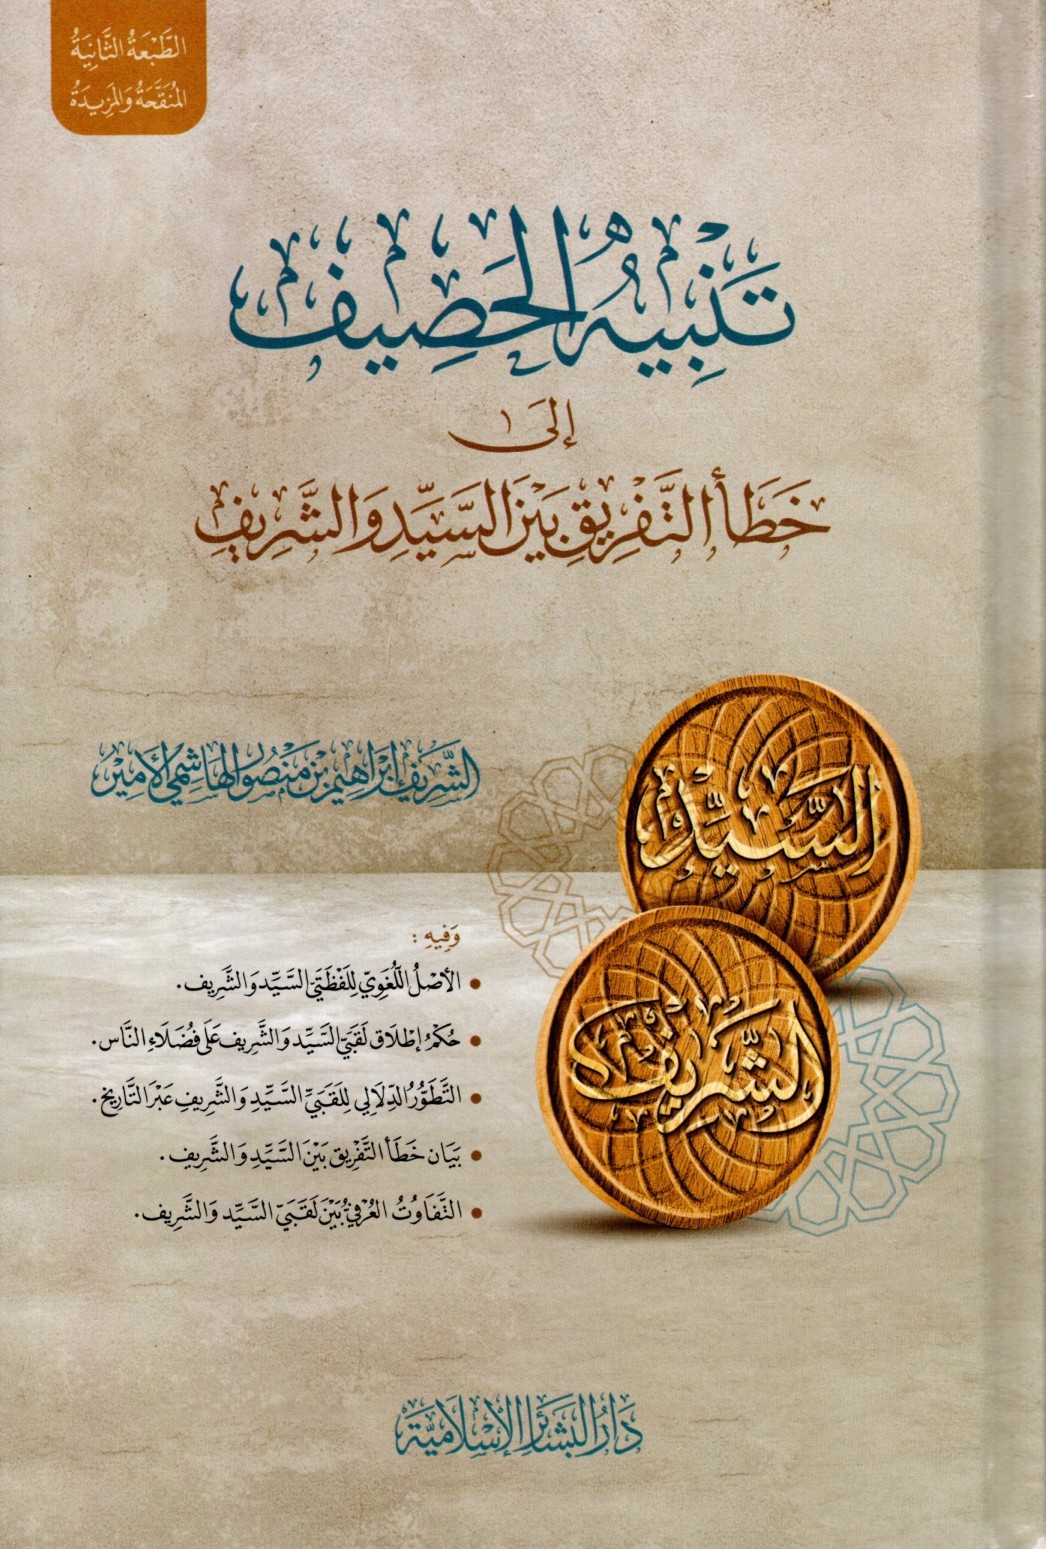 الطَّبْعَةُ الثَّانِيَةُ
المُنَقَّحَةُ وَالمَزِيدَةُ
تَنْبِيهُ الحَصِيفِ
إِلَى
خَطَأ التَّفْرِيقِ بَيْنَ السَّيِّدِ وَالشَّرِيفِ
الشَّرِيف إِبْرَاهِيم بْن مَنْصُور الهَاشِمِيُّ الأَمِيرُ
السَّيِّد
الشَّرِيف
وَفِيهِ :
• الأَصْلُ اللُّغَوِيّ لِلَفْظَتَيِ السَّيِّد وَالشَّرِيف.
• حُكْمُ إِطْلَاق لَقَبَيِ السَّيِّد وَالشَّرِيف عَلَى فُضَلَاءِ النَّاس.
• التَّطَوُّرُ الدِّلَالِي لِلَقَبَيِّ السَّيِّدِ وَالشَّرِيفِ عَبْرَ التَّارِيخ.
• بَيَان خَطَأ التَّفْرِيق بَيْنَ السَّيِّدِ وَالشَّرِيفِ.
• التَّفَاوُتُ العُرْفِيُّ بَيْنَ لَقَبَيِّ السَّيِّد وَالشَّرِيف.
دَارُ البَشَائِرِ الإِسْلَامِيَّة